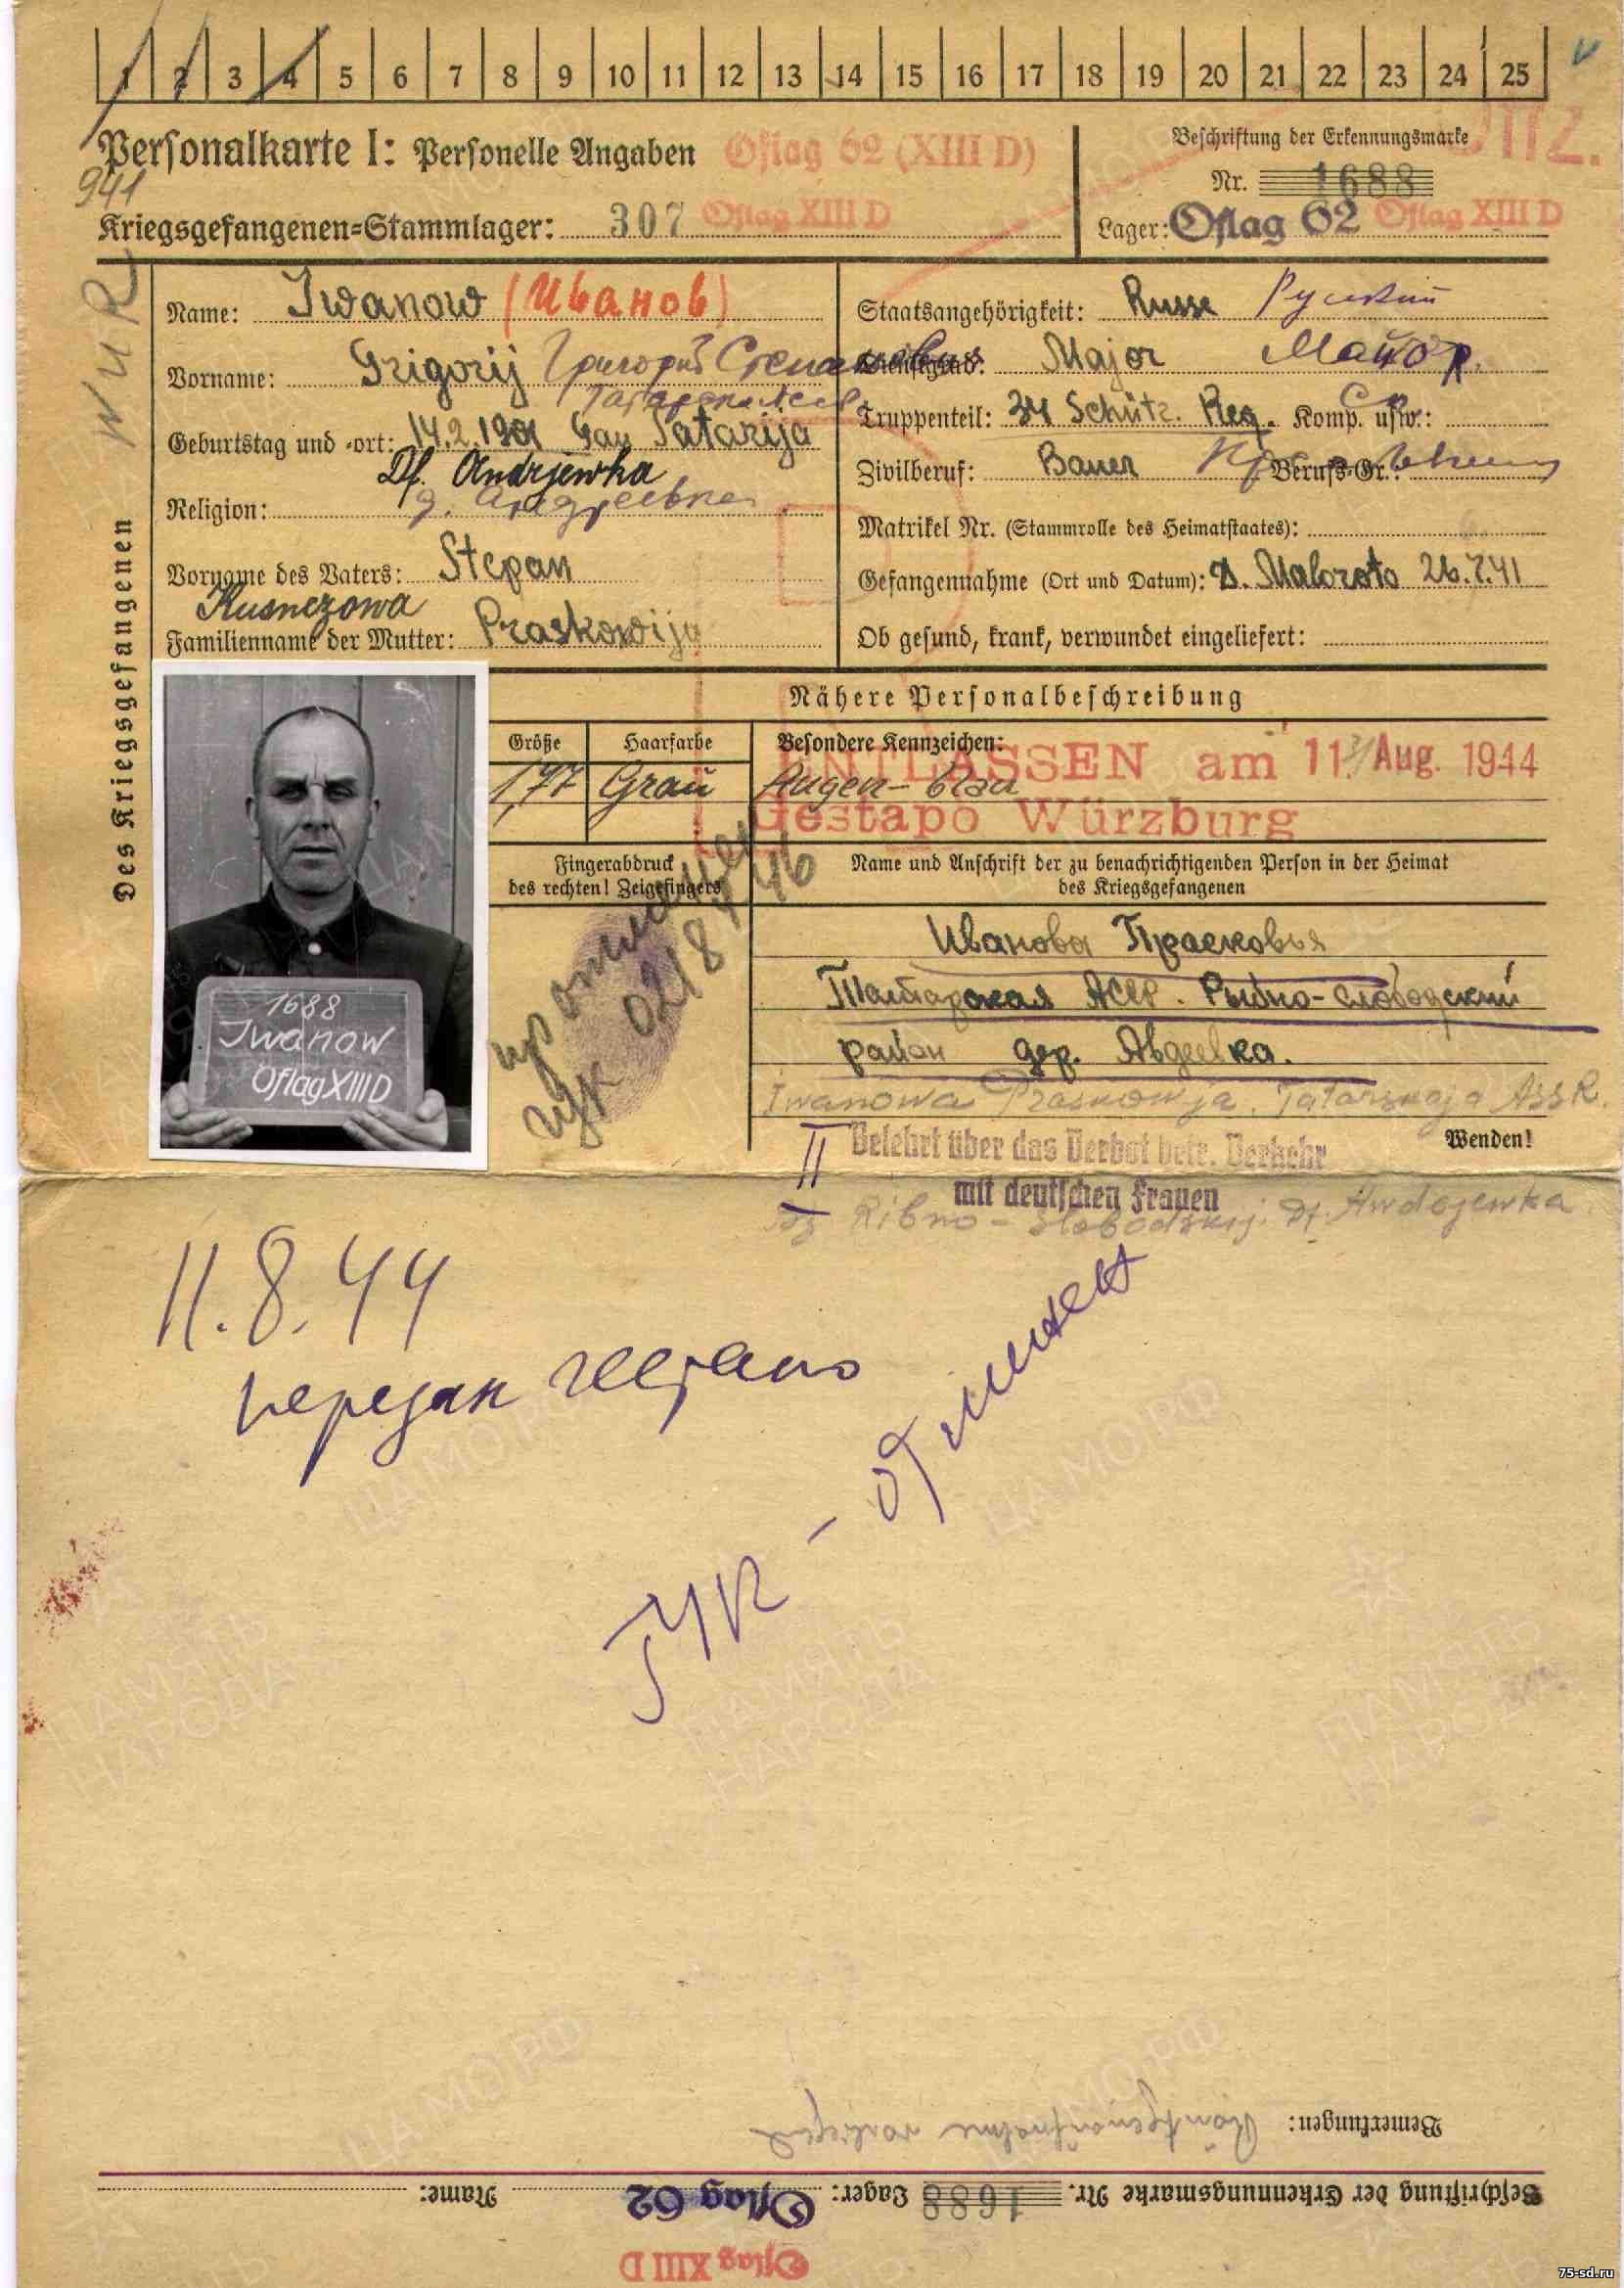 1 2 3 4 5 6 7 8 9 10 11 12 13 14 15 16 17 18 19 20 21 22 23 24 25
Personalkarte I: Personelle Angaben Oflag 62 (XIII D)
Beschriftung der Erkennungsmarke
Offz.
941
Nr. 1688
Kriegsgefangenen=Stammlager: 307 Oflag XIII D
Lager: Oflag 62 Oflag XIII D
Des Kriegsgefangenen
Name: Iwanow (Иванов)
Vorname: Grigorij Григорий Степанович
Geburtstag und =ort: 14.2.1901 Gau Tatarija
Df. Andrjewka
Religion:
Vorname des Vaters: Stepan
Kusnezowa
Familienname der Mutter: Praskowija
Staatsangehörigkeit: Russe Русский
Dienstgrad: Major Майор
Truppenteil: 34 Schütz. Reg. Komp. usw.:
Zivilberuf: Bauer Berufs=Gr.:
Matrikel Nr. (Stammrolle des Heimatstaates):
Gefangennahme (Ort und Datum): D. Maloroto 26.7.41
Ob gesund, krank, verwundet eingeliefert:
Nähere Personalbeschreibung
Größe Haarfarbe Besondere Kennzeichen:
1,77 Grau Augen - blau
ENTLASSEN am 11. Aug. 1944
Gestapo Würzburg
Fingerabdruck
des rechten! Zeigefingers
Name und Anschrift der zu benachrichtigenden Person in der Heimat
des Kriegsgefangenen
Иванова Прасковья
Татарская АССР. Рыбно-слободский
район дер. Авдеевка.
Iwanowa Praskowja. Tatarskaja ASSR.
Wenden!
1688
Iwanow
Oflag XIII D
II
Belehrt über das Verbot betr. Verkehr
mit deutschen Frauen
Ribno - Slobodskij. Df. Awdejewka
11.8.44
передан гестапо
Bemerkungen:
Beschriftung der Erkennungsmarke Nr. 1688 Lager: Oflag 62 Name:
Oflag XIII D
ЦАМО.РФ
ПАМЯТЬ
НАРОДА
75-sd.ru